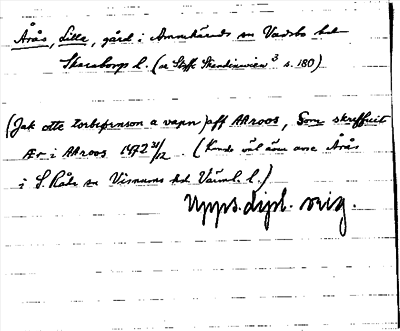 Årås, Lilla, gård i Amnehärads sn Vadsbo hd
Skaraborgs l. (se Styffe Skandinavien³ s. 180)
(Jak otte torbefrnson a vapn) aff AAroos, Som skreffuit
Ær i AAroos 1472 31/12. (Kunde väl även avse Årås
i S. Råda sn Visnums hd Värml. l.)
Upps. dipl. orig.